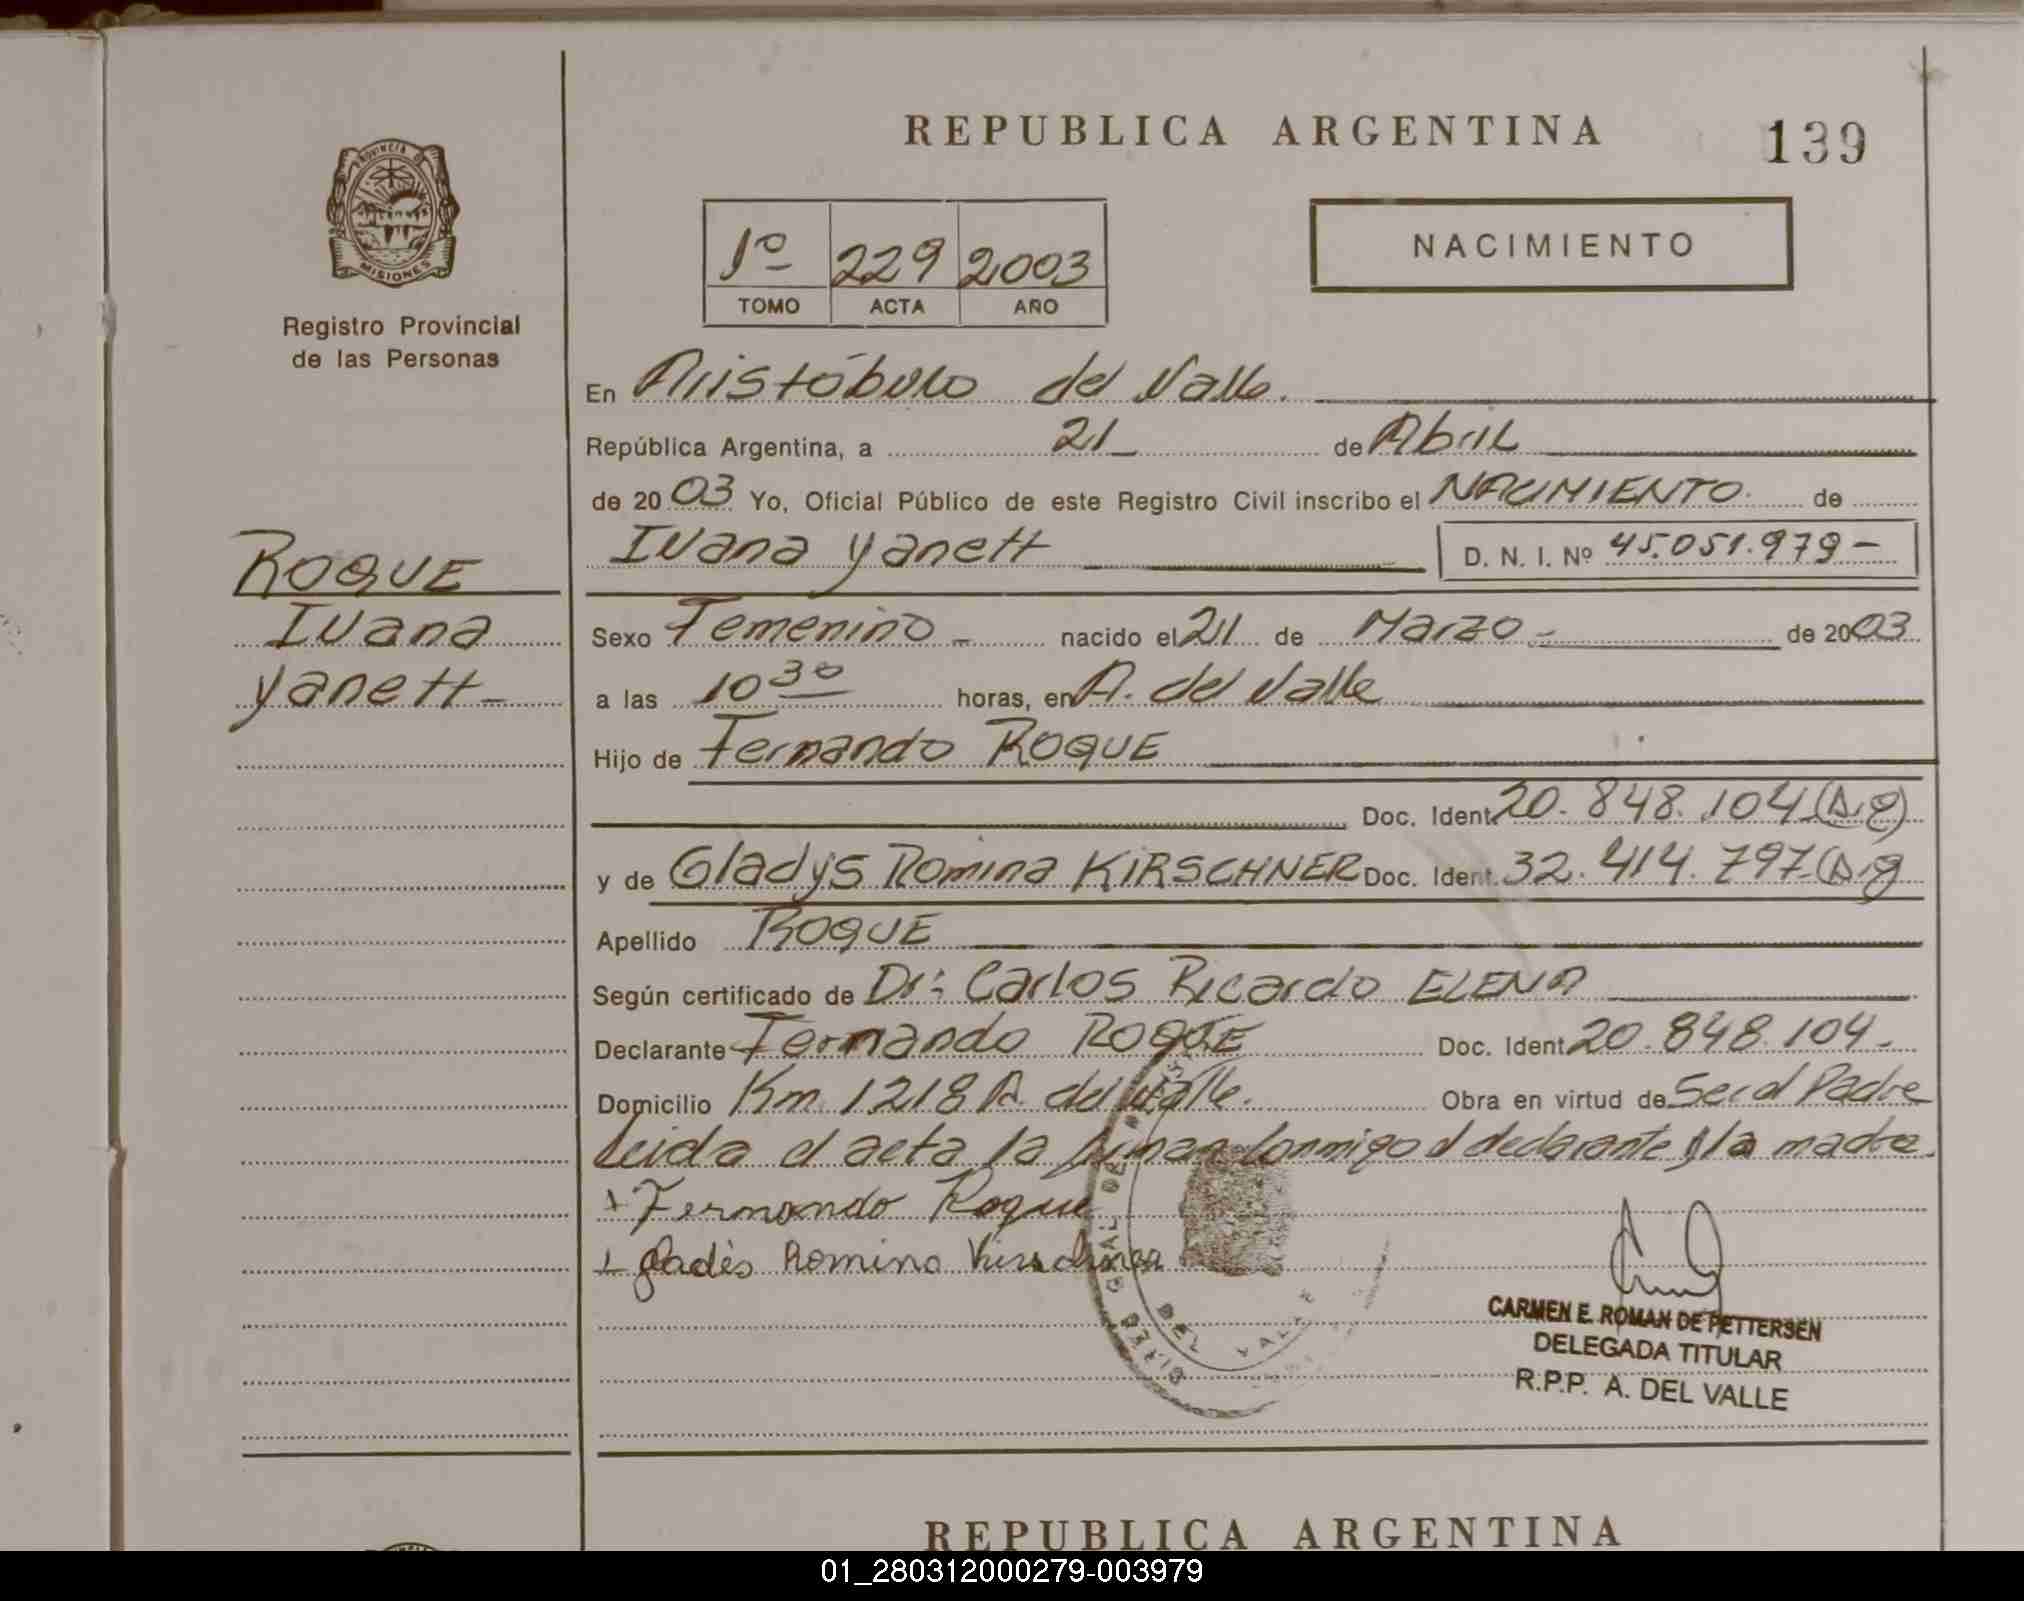 REPUBLICA ARGENTINA
139
PROVINCIA D
MISIONES
Registro Provincial
de las Personas
1º 229 2003
TOMO ACTA AÑO
NACIMIENTO
En Aristóbulo del Valle.
República Argentina, a 21 de Abril
de 2003 Yo, Oficial Público de este Registro Civil inscribo el NACIMIENTO. de
Ivana Yanett D. N. I. Nº 45.051.979-
ROQUE
Ivana
Yanett-
Sexo Femenino- nacido el 21 de Marzo- de 2003
a las 10 30 horas, en A. del Valle
Hijo de Fernando ROQUE
Doc. Ident. 20.848.104 (Arg)
y de Gladys Romina KIRSCHNER Doc. Ident. 32.414.797 (Arg
Apellido ROQUE
Según certificado de Dr: Carlos Ricardo ELENA
Declarante Fernando ROQUE Doc. Ident. 20.848.104-
Domicilio Km. 1218 A. del Valle. Obra en virtud de Ser el Padre
Leida el acta la firman conmigo el declarante y la madre.
Fernando Roque
Gladis Romina Kirschner
DEL VALLE
CARMEN E. ROMAN DE PETTERSEN
DELEGADA TITULAR
R.P.P. A. DEL VALLE
REPUBLICA ARGENTINA
01_280312000279-003979